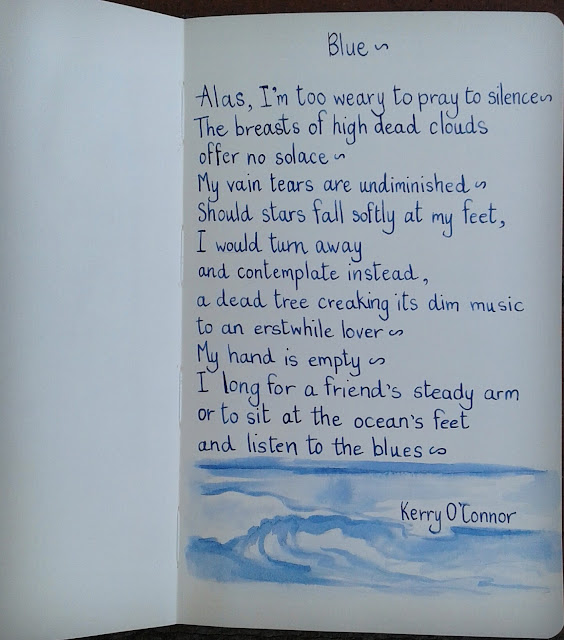 Blue ~
Alas, I'm too weary to pray to silence ~
The breasts of high dead clouds
offer no solace ~
My vain tears are undiminished ~
Should stars fall softly at my feet,
I would turn away
and contemplate instead,
a dead tree creaking its dim music
to an erstwhile lover ~
My hand is empty ~
I long for a friend's steady arm
or to sit at the ocean's feet
and listen to the blues ~
Kerry O'Connor